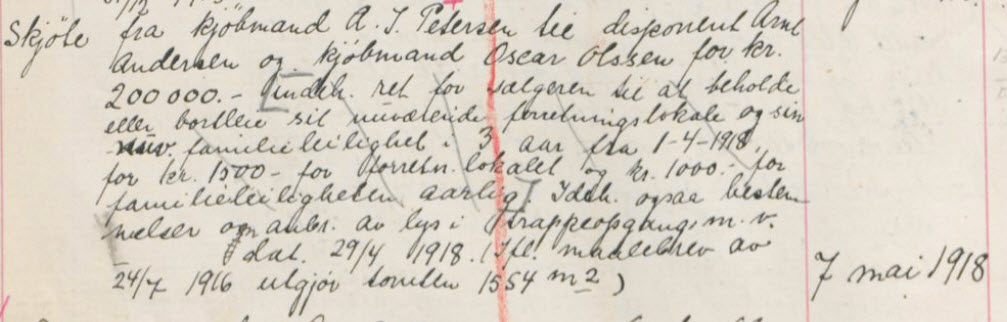 Skjöte fra kjöbmand A. J. Petersen til disponent Arnt
Andersen og kjöbmand Oscar Olssen for kr.
200 000.- [indeh. ret for sælgeren til at beholde
eller bortleie sit nuværende forretningslokale og sin
nuv. familieleilighet i 3 aar fra 1-4-1918,
for kr. 1500- for forretn.lokalet og kr. 1000.- for
familieleiligheten aarlig]. Ideh. ogsaa bestem
melser om anbr. av lys i trappeopgang, m.v.
dat. 29/4 1918. (Ifl. maalebrev av
24/7 1916 utgjör tomten 1554 m2)
7 mai 1918